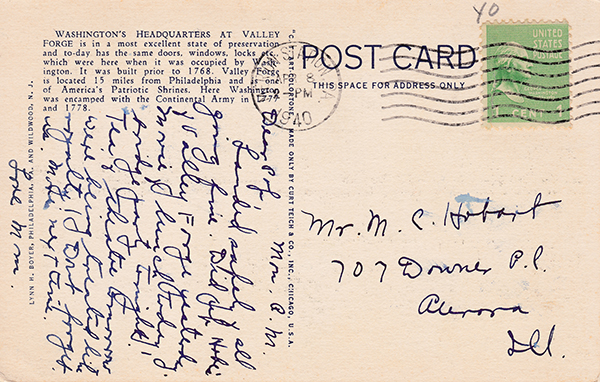 WASHINGTON'S HEADQUARTERS AT VALLEY
FORGE is in a most excellent state of preservation
and to-day has the same doors, windows, locks etc.,
which were here when it was occupied by Wash-
ington. It was built prior to 1768. Valley Forge
is located 15 miles from Philadelphia and is one
of America's Patriotic Shrines. Here Washington
was encamped with the Continental Army in 1777
and 1778.
LYNN H. BOYER, PHILADELPHIA, PA. AND WILDWOOD, N. J.
Mon. A.M.
Dear
Landed safely, all
going fine. Did
Valley Forge yesterday.
Movie & lunch today,
bridge party tonight,
Tea & theatre tomorrow
were being treated like
royalty. Dont forget
us. Mother next time.
Love
MADE ONLY BY CURT TEICH & CO., INC., CHICAGO, U.S.A.
POST CARD
THIS SPACE FOR ADDRESS ONLY
APR 8
PM
1940
40
UNITED
STATES
POSTAGE
1 CENT 1
Mr. M. C. Hobart
707 Downer Pl.
Aurora
Ill.